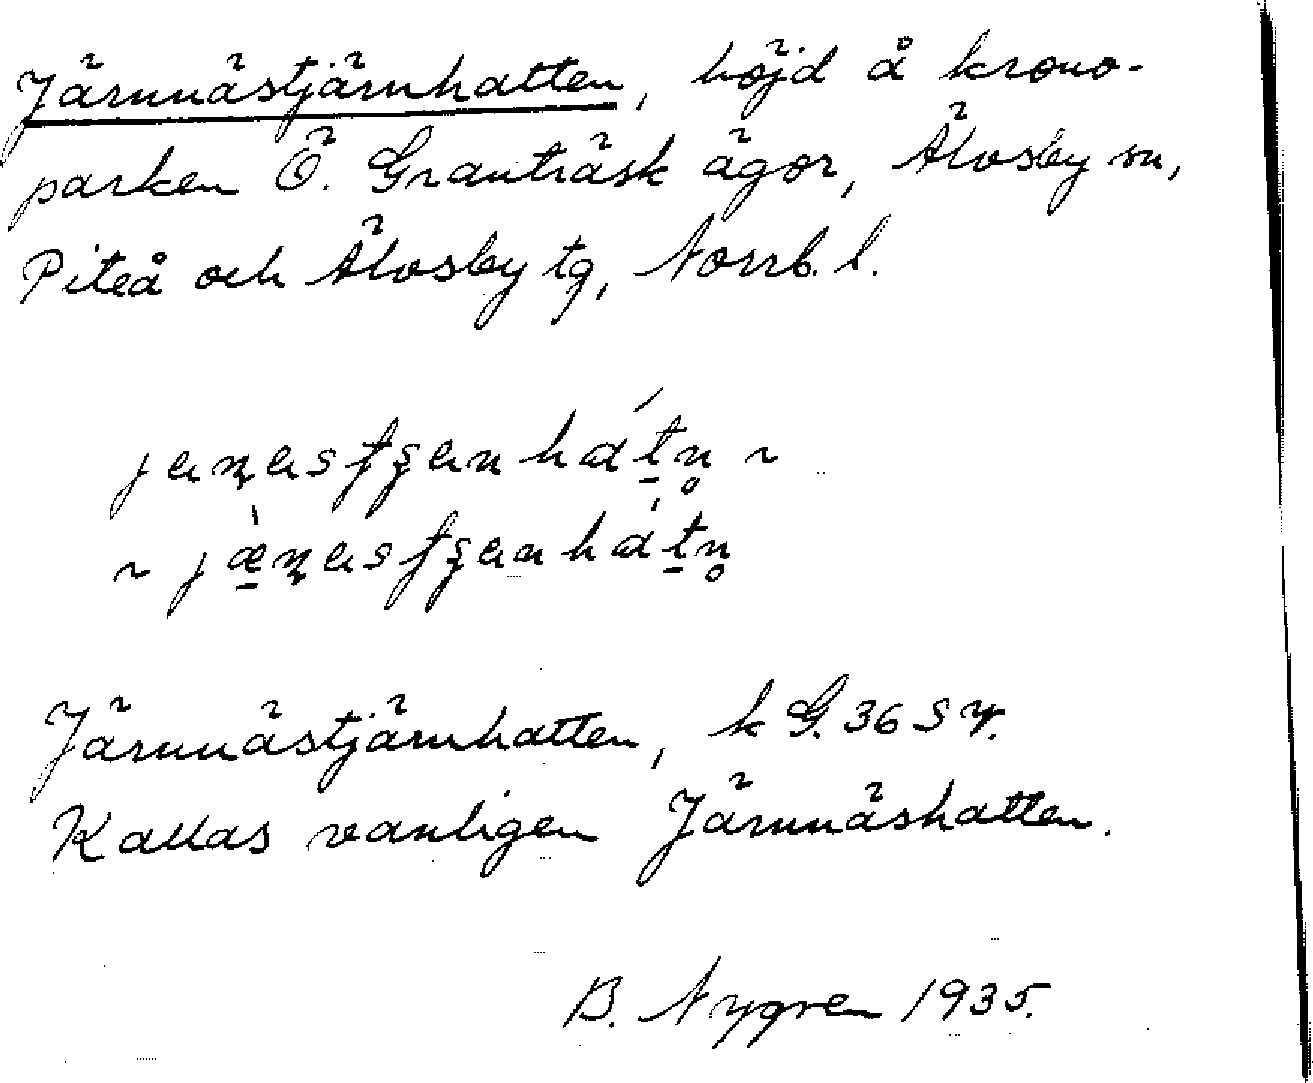 Järnnästjärnhatten, höjd å krono-
parken Ö. Granträsk ägor, Älvsby sn,
Piteå och Älvsby tg, Norrb. l.
Järnnästjärnhatten, k G. 36 S y.
Kallas vanligen Järnnäshatten.
B. Nygren 1935.